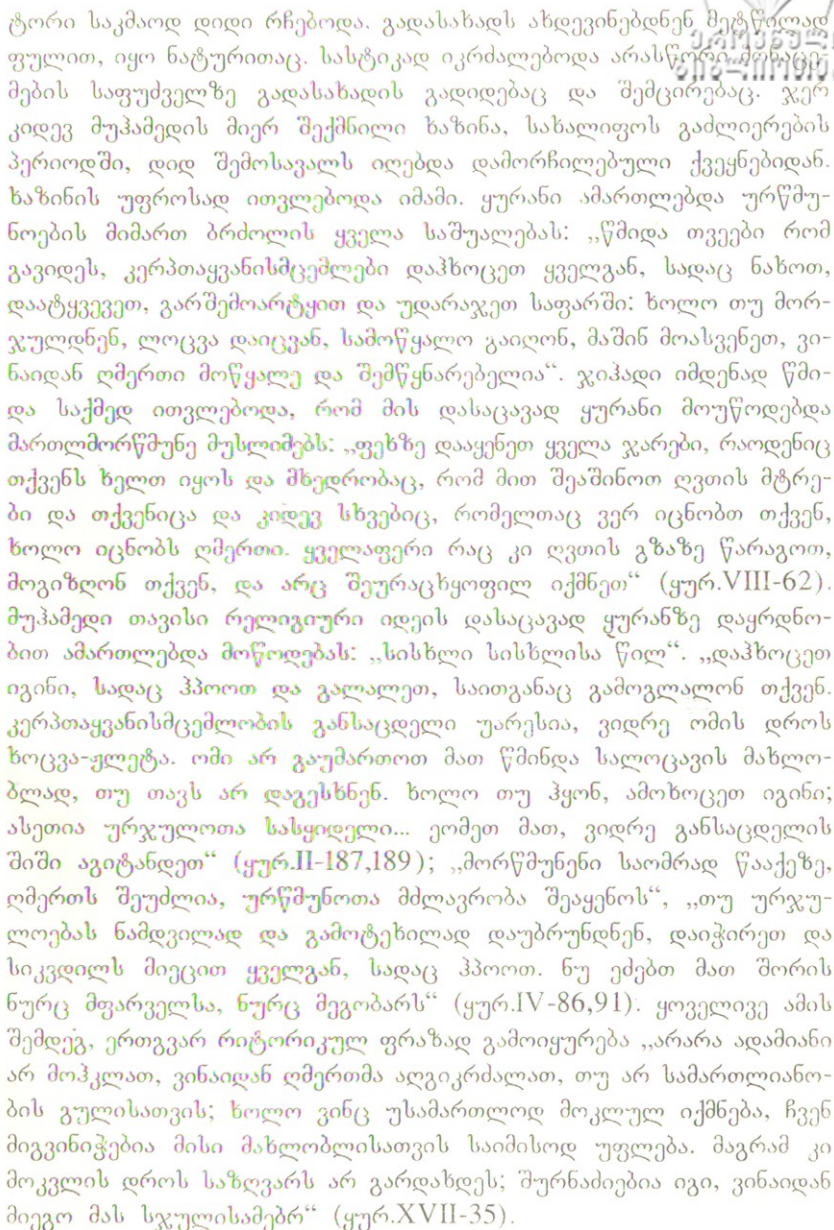 ტორი საკმაოდ დიდი რჩებოდა. გადასახადს ახდევინებდნენ მეტწილად
ფულით, იყო ნატურითაც. სასტიკად იკრძალებოდა არასწორი მონაცე-
მების საფუძველზე გადასახადის გადიდებაც და შემცირებაც. ჯერ
კიდევ მუჰამედის მიერ შექმნილი ხაზინა, სახალიფოს გაძლიერების
პერიოდში, დიდ შემოსავალს იღებდა დამორჩილებული ქვეყნებიდან.
ხაზინის უფროსად ითვლებოდა იმამი. ყურანი ამართლებდა ურწმუ-
ნოების მიმართ ბრძოლის ყველა საშუალებას: „წმიდა თვეები რომ
გავიდეს, კერპთაყვანისმცემლები დაჰხოცეთ ყველგან, სადაც ნახოთ,
დაატყვევეთ, გარშემოარტყით და უდარაჯეთ საფარში: ხოლო თუ მორ-
ჯულდნენ, ლოცვა დაიცვან, სამოწყალო გაიღონ, მაშინ მოასვენეთ, ვი-
ნაიდან ღმერთი მოწყალე და შემწყნარებელია“. ჯიჰადი იმდენად წმი-
და საქმედ ითვლებოდა, რომ მის დასაცავად ყურანი მოუწოდებდა
მართლმორწმუნე მუსლიმებს: „ფეხზე დააყენეთ ყველა ჯარები, რაოდენიც
თქვენს ხელთ იყოს და მხედრობაც, რომ მით შეაშინოთ ღვთის მტრე-
ბი და თქვენიცა და კიდევ სხვებიც, რომელთაც ვერ იცნობთ თქვენ,
ხოლო იცნობს ღმერთი. ყველაფერი რაც კი ღვთის გზაზე წარაგოთ,
მოგიზღონ თქვენ, და არც შეურაცხყოფილ იქმნეთ“ (ყურ.VIII-62).
მუჰამედი თავისი რელიგიური იდეის დასაცავად ყურანზე დაყრდნო-
ბით ამართლებდა მოწოდებას: „სისხლი სისხლისა წილ“. „დაჰხოცეთ
იგინი, სადაც ჰპოოთ და გალალეთ, საითგანაც გამოგლალონ თქვენ.
კერპთაყვანისმცემლობის განსაცდელი უარესია, ვიდრე ომის დროს
ხოცვა-ჟლეტა. ომი არ გაუმართოთ მათ წმინდა სალოცავის მახლო-
ბლად, თუ თავს არ დაგესხნენ. ხოლო თუ ჰყონ, ამოხოცეთ იგინი;
ასეთია ურჯულოთა სასყიდელი... ეომეთ მათ, ვიდრე განსაცდელის
შიში აგიტანდეთ“ (ყურ.II-187,189); „მორწმუნენი საომრად წააქეზე,
ღმერთს შეუძლია, ურწმუნოთა მძლავრობა შეაყენოს“, „თუ ურჯუ-
ლოებას ნამდვილად და გამოტეხილად დაუბრუნდნენ, დაიჭირეთ და
სიკვდილს მიეცით ყველგან, სადაც ჰპოოთ. ნუ ეძებთ მათ შორის
ნურც მფარველსა, ნურც მეგობარს“ (ყურ.IV-86,91). ყოველივე ამის
შემდეგ, ერთგვარ რიტორიკულ ფრაზად გამოიყურება „არარა ადამიანი
არ მოჰკლათ, ვინაიდან ღმერთმა აღგიკრძალათ, თუ არ სამართლიანო-
ბის გულისათვის; ხოლო ვინც უსამართლოდ მოკლულ იქმნება, ჩვენ
მიგვინიჭებია მისი მახლობლისათვის საიმისოდ უფლება. მაგრამ კი
მოკვლის დროს საზღვარს არ გარდახდეს; შურნაძიებია იგი, ვინაიდან
მიეგო მას სჯულისამებრ“ (ყურ.XVII-35).